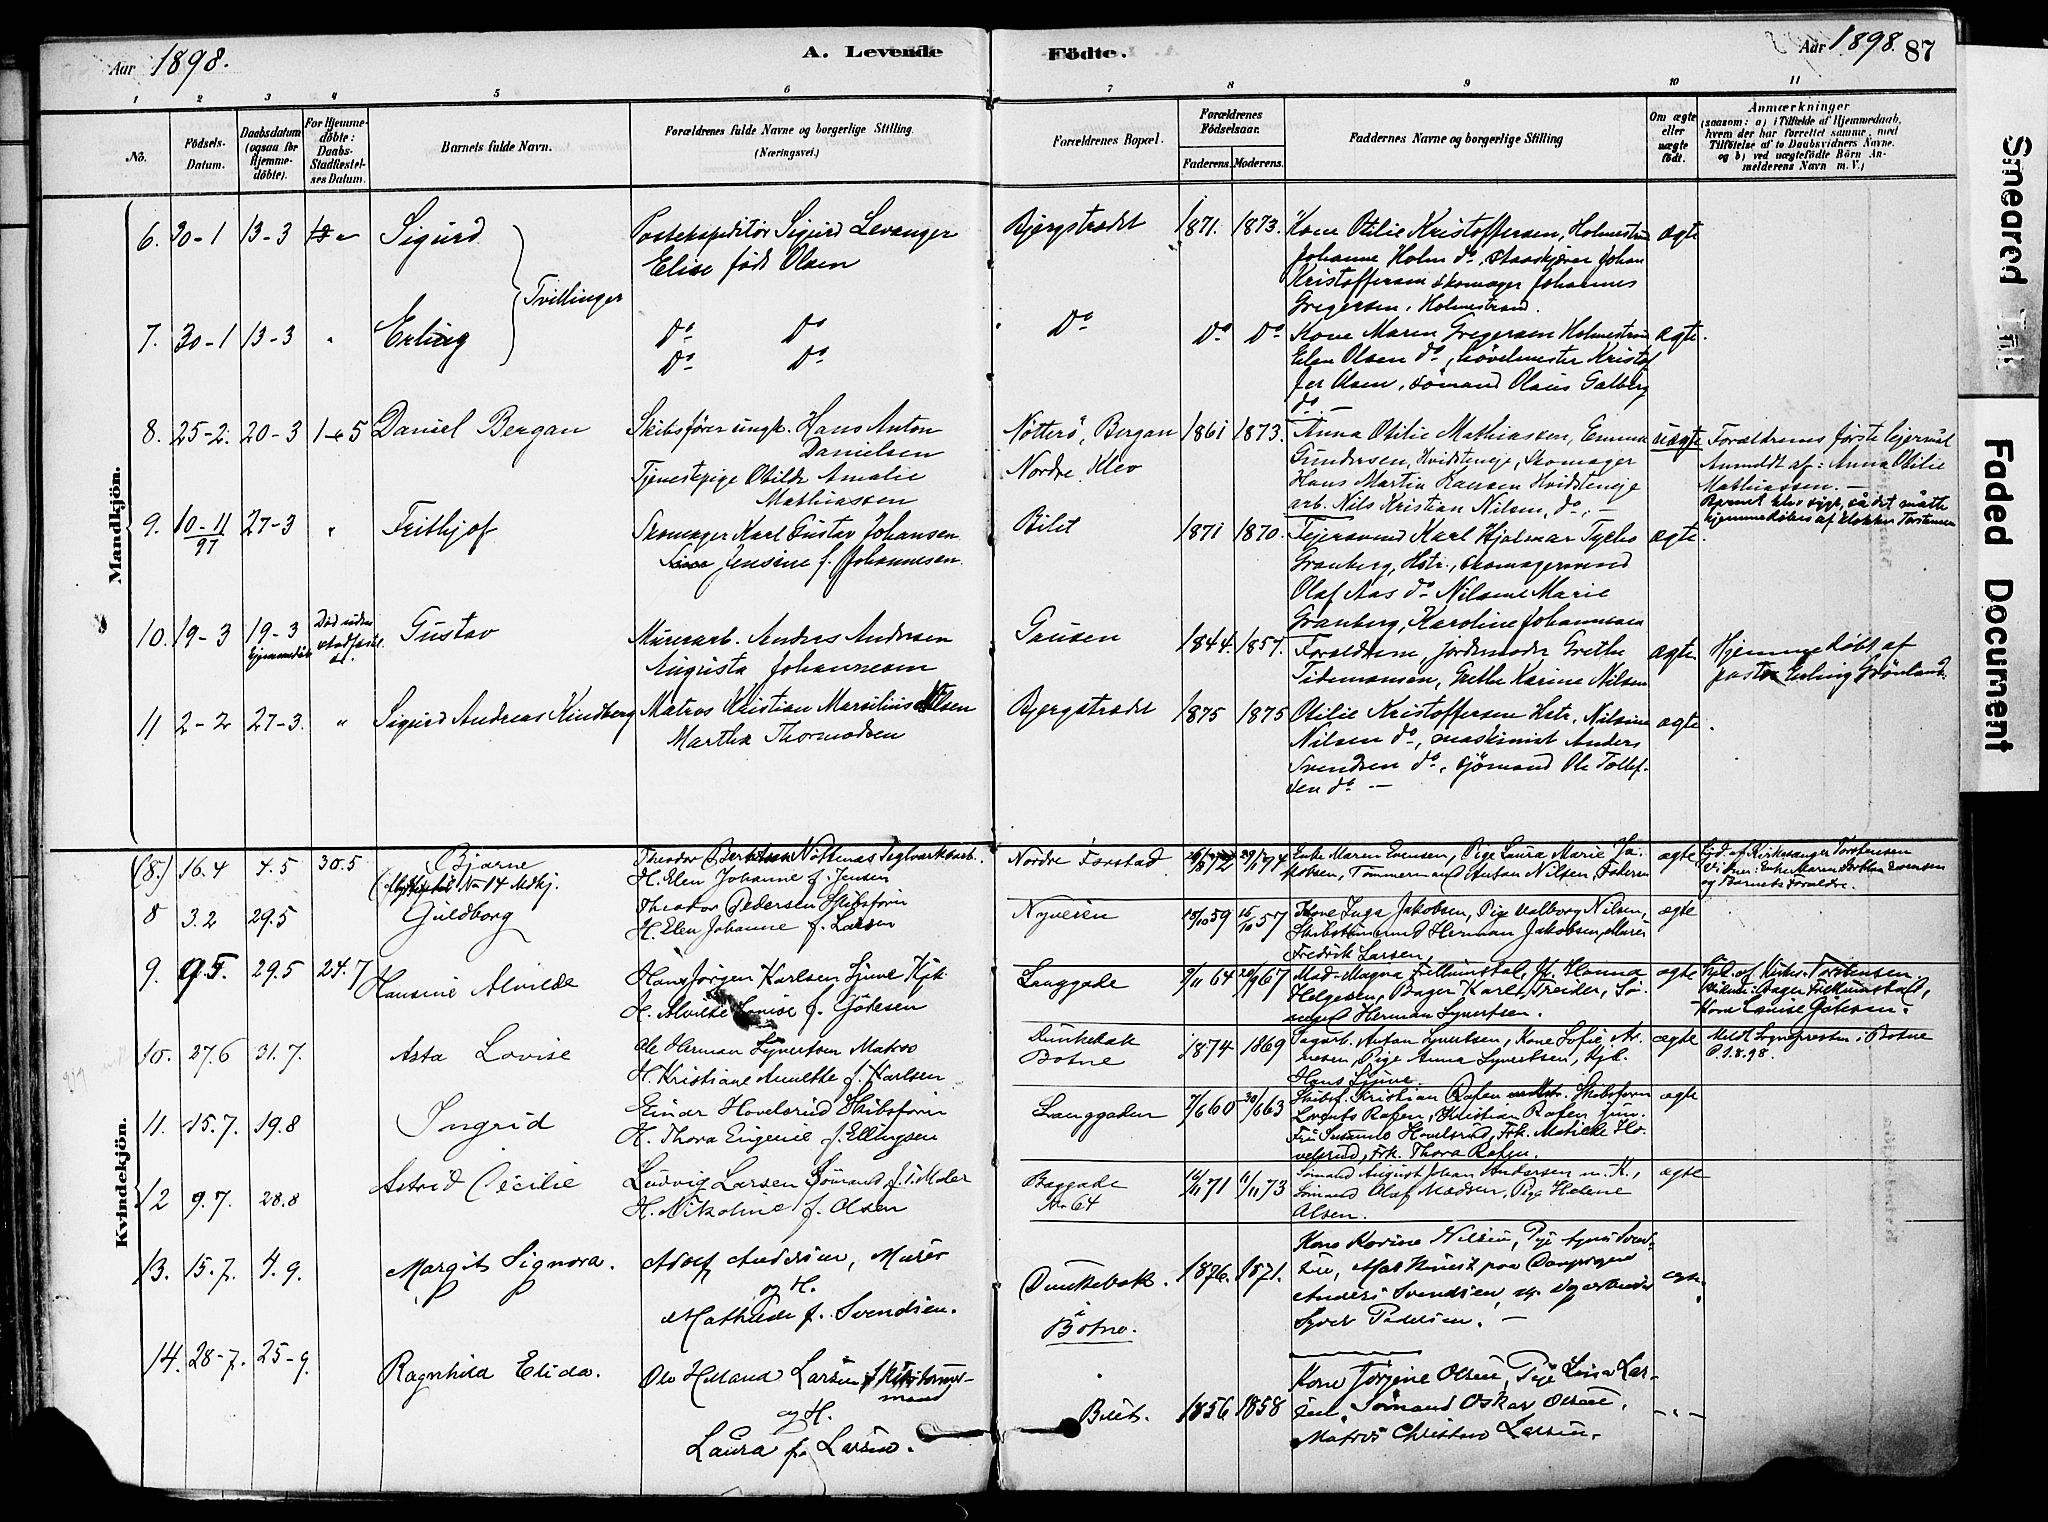 Aar 1898.
A. Levende
Födte.
Aar 1898.
87
1 2 3 4 5 6 7 8 9 10 11
No.
Födsels-Datum.
Daabsdatum (ogsaa for Hjemmedöbte).
For Hjemmedöbte: Daabs-Stadfæstelses Datum.
Barnets fulde Navn.
Forældrenes fulde Navne og borgerlige Stilling.
(Næringsvei.)
Forældrenes Bopæl.
Forældrenes Födselsaar.
Faderens. Moderens.
Faddernes Navne og borgerlige Stilling
Om ægte eller uægte födt.
Anmærkninger
(saasom: a) i Tilfælde af Hjemmedaab,
hvem der har forrettet samme, med
Tilföielse af to Daabsvidners Navne.
og b) ved uægtefödte Börn An-
melderens Navn m. V.)
Smeared
Faded Document
Mandkjön.
6. 30-1 13-3 Sigurd
Postexpeditör Sigurd Levanger
Elise født Olsen
Bjergstrædet 1871. 1873.
Kone Otilie Kristoffersen, Holmestrand
Johanne Holm do, Johan
Kristoffersen skomager Johannes
Gregersen, Holmestrand.
ægte
Tvillinger
7. 30-1 13-3 " Erling
Do Do
Do Do
Do Do Do
Kone Maren Gregersen Holmestrand
Elen Olsen do, høvelmester Kristof
fer Olsen, sømand Olaus Galberg
do
ægte
8. 25-2. 20-3 1-5 Daniel Bergan
Skibsfører ungk. Hans Anton
Danielsen
Tjenestepige Otilde Amalie
Mathiassen
Nötterö, Bergan
Nordre Klev
1861 1873.
Anna Otilie Mathiassen, Emma
Gundersen, Hvidsteneje, Skomager
Hans Martin Hansen Hvidsteneje
arb. Nils Kristian Nilsen, do, -
uægte
Forældrenes første lejermål
Anmeldt af: Anna Otilie
Mathiassen. -
Barnet blev sygt, så det måtte
hjemmedøbes af klokker Torstensen
9. 10-11 97 27-3 " Frithjof
Skomager Karl Gustav Johansen
Jensine f. Johannesen.
Bilet 1871 1870.
Fejersvend Karl Hjalmar Tycho
Granberg, Hstr., skomagersvend
Olaf Aas do Nilsine Marie
Granberg, Karoline Johannesen
ægte
10. 19-3 19-3 hjemmedøbt
Død uden stadfæstel
Gustav
Murerarb. Anders Andersen
Augusta Johannesen
Gausen 1844. 1857.
Forældrene, jordemoder Grethe
Tidemansen, Grethe Karine Nilsen
ægte
Hjemmedøbt af
pastor Erling Grönland
11 2-2 27-3. " Sigurd Andreas Kindberg
Matros Kristian Marsilius Olsen
Martha Thormodsen
Bjergstrædet 1875 1875
Otilie Kristoffersen Hstr. Nilsine
Nilsen do, maskinist Anders
Svendsen do, sjömand Ole Tollef-
sen do -
ægte.
Kvindekjön.
(8.) 16.4 4.5 30.5 Bjarne
No 14 Mdkj.
Theodor Berntsen Nøttenæs Teglværksarb.
H. Elen Johanne f. Jensen
Nordre Forstad
Enke Maren Evensen, Pige Laura Marie Ja-
kobsen, Tømmermand Anton Nilsen, Faderen
ægte
Hjd. af Kirkesanger Torstensen
Vidner: Enke Maren Evensen
og Barnets Forældre.
8 3.2 29.5 Guldborg
Theodor Pedersen Skibsfører
H. Elen Johanne f. Larsen
Nyveien 59 57
Kone Inga Jakobsen, Pige Valborg Nilsen,
Herman Jakobsen,
Fredrik Larsen.
ægte
9. 9.5. 29.5 24.7 Hansine Alvilde
Hans Jørgen Karlsen Sjuve Kjk
H. Alvilde Lovise f. Gótesen
Langgade 9/11 64 20/9 67
Mad. Magna Folkunstal, Jf. Hanna
Helgesen, Bager Karl Treider, Sø-
mand Herman Syvertsen.
ægte
Hjd. af Kirkes. Torstensen.
Vidner: Bager Folkunstal,
Kone Lovise Gótesen.
10. 27.6 31.7. Asta Lovise
Ole Herman Syvertsen Matros
H. Kristiane Anette f. Karlsen
Dunkebak
Botne
1874 1869
Dagarb. Anton Syvertsen, Kone Sofie Ar-
nesen, Pige Anna Syvertsen, Kjk.
Hans Sjuve.
ægte
Meldt Sognepresten i Botne
P. 1.8.98.
11. 15.7. 19.8 Ingrid
Einar Hovelsrud Skibsfører
H. Thora Eugenie f. Ellingsen
Langgaden 7/6 60 30/6 63
Skibsf. Kristian Rafen Skibsfører
Lorents Rafen, Kristian Rafen jun.
Fru Susanne Hovelsrud, Frk. Matilde Ho-
velsrud, Frk. Thora Rafen.
ægte
12 9.7. 28.8 Astrid Cecilie
Ludvig Larsen Sømand f. i Moler
H. Nikoline f. Olsen
Baggade
No 64
71 11/11 73
Sømand August Johan Andersen m. K.,
Sømand Olaf Madsen, Pige Helene
Olsen.
ægte
13. 15.7. 4.9. Margit Signora.
Adolf Andersen, Murer
og H.
Mathilde f. Svendsen.
Dunkebak.
i
Botne.
1876. 1871.
Kone Karine Nilsen, Pige Agnes Svend-
sen, Maskinist paa
Anders Svendsen, og
Syver Pedersen. -
ægte.
14. 28-7. 25-9. Ragnhild Elida.
Ole Helland Larsen Skibstømmer-
mand
og H.
Laura f. Larsen.
Bilet. 1856 1858
Kone Jørgine Olsen, Pige Lovisa Lar-
sen, Sømand Oskar Olsen,
Matros Christian Larsen.
-"-